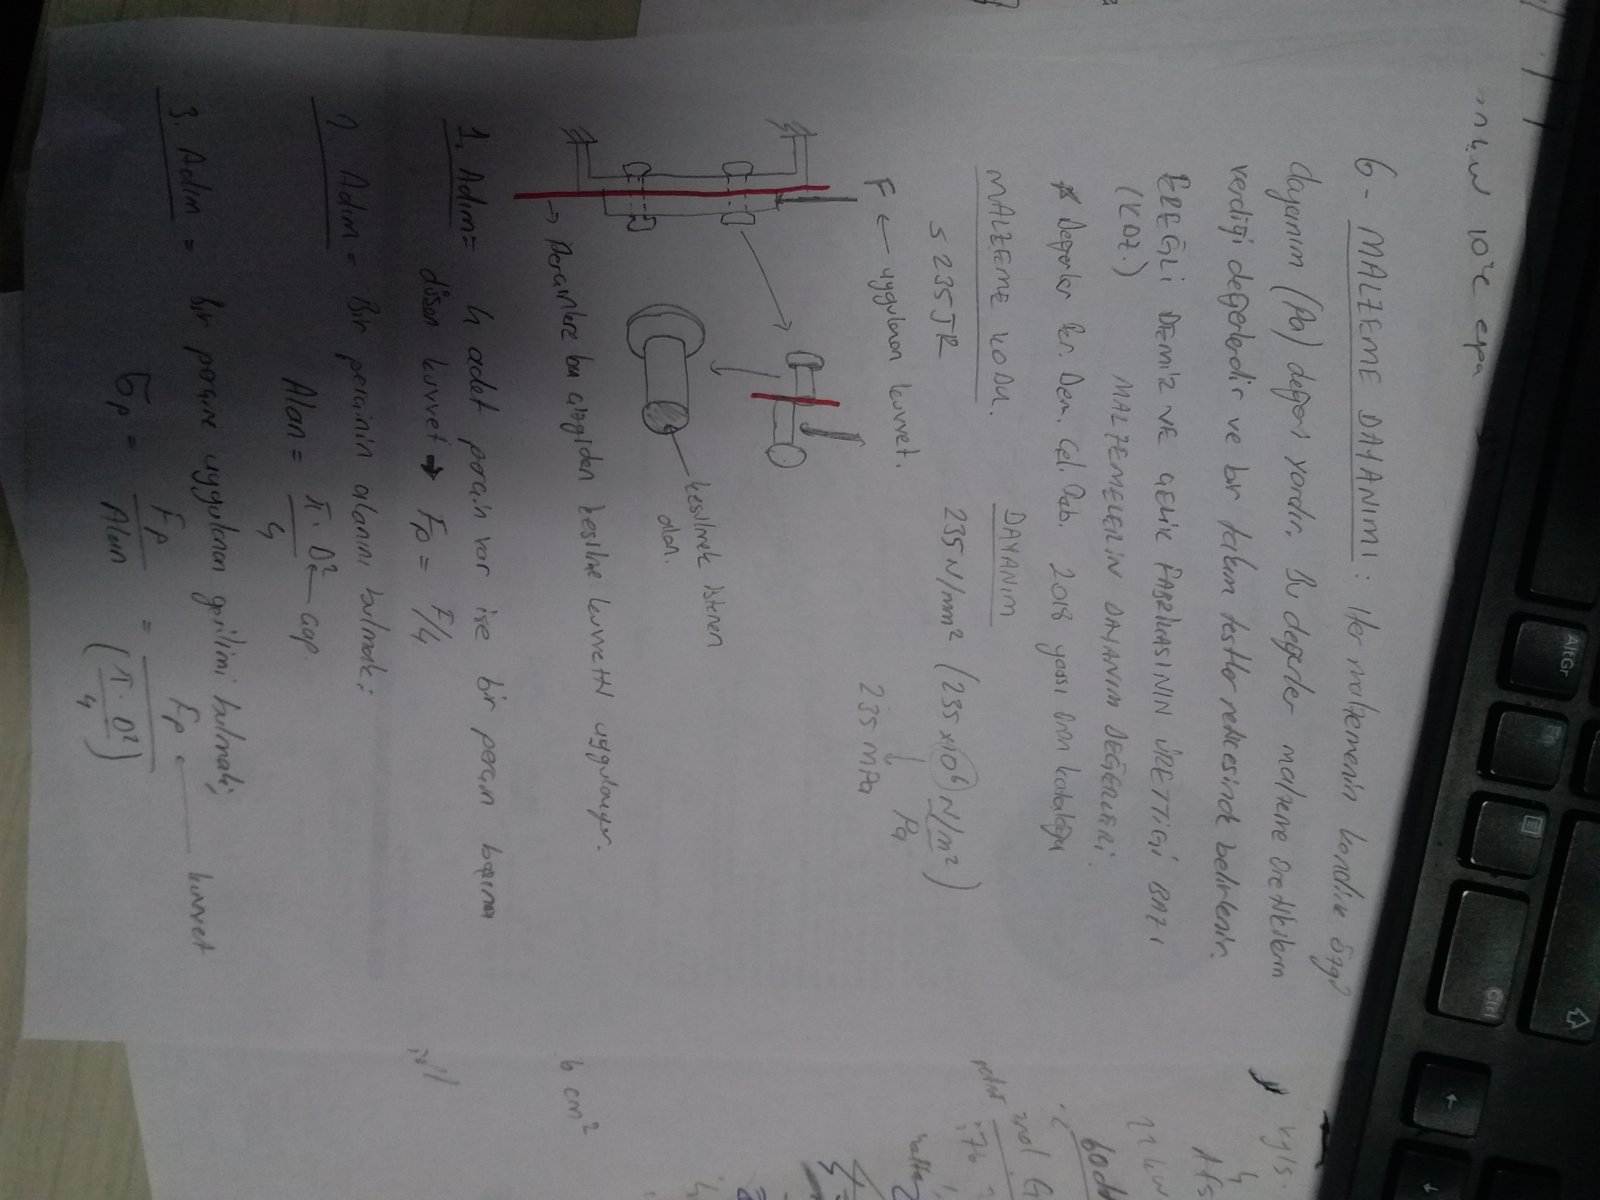 10°C
6- MALZEME DAYANIMI: Her malzemenin kendine özgü
dayanım (Pa) değeri vardır. Bu değerler malzeme üreticilerin
verdiği değerlerdir ve bir takım testler neticesinde belirlenir.
EREĞLİ DEMİR VE ÇELİK FABRİKASININ ÜRETTİĞİ BAZI
(KDZ.) MALZEMELERİN DAYANIM DEĞERLERİ:
* Değerler Er. Dem. Çel. Fab. 2018 yassı ürün kataloğu
MALZEME KODU. DAYANIM
S 235JR 235 N/mm² (235 x10⁶ N/m²)
Pa
235 MPa
F ← uygulanan kuvvet.
kesilmek istenen
alan.
→ Perçinlere bu çizgiden kesilme kuvveti uygulanıyor.
1. Adım = 4 adet perçin var ise bir perçin başına
düşen kuvvet → Fp = F/4
2. Adım = Bir perçinin alanını bulmak;
Alan = π.D²/4 ← çap.
3. Adım = Bir perçine uygulanan gerilimi bulmak;
σp = Fp/Alan = Fp/(π.D²/4) kuvvet
6 cm²